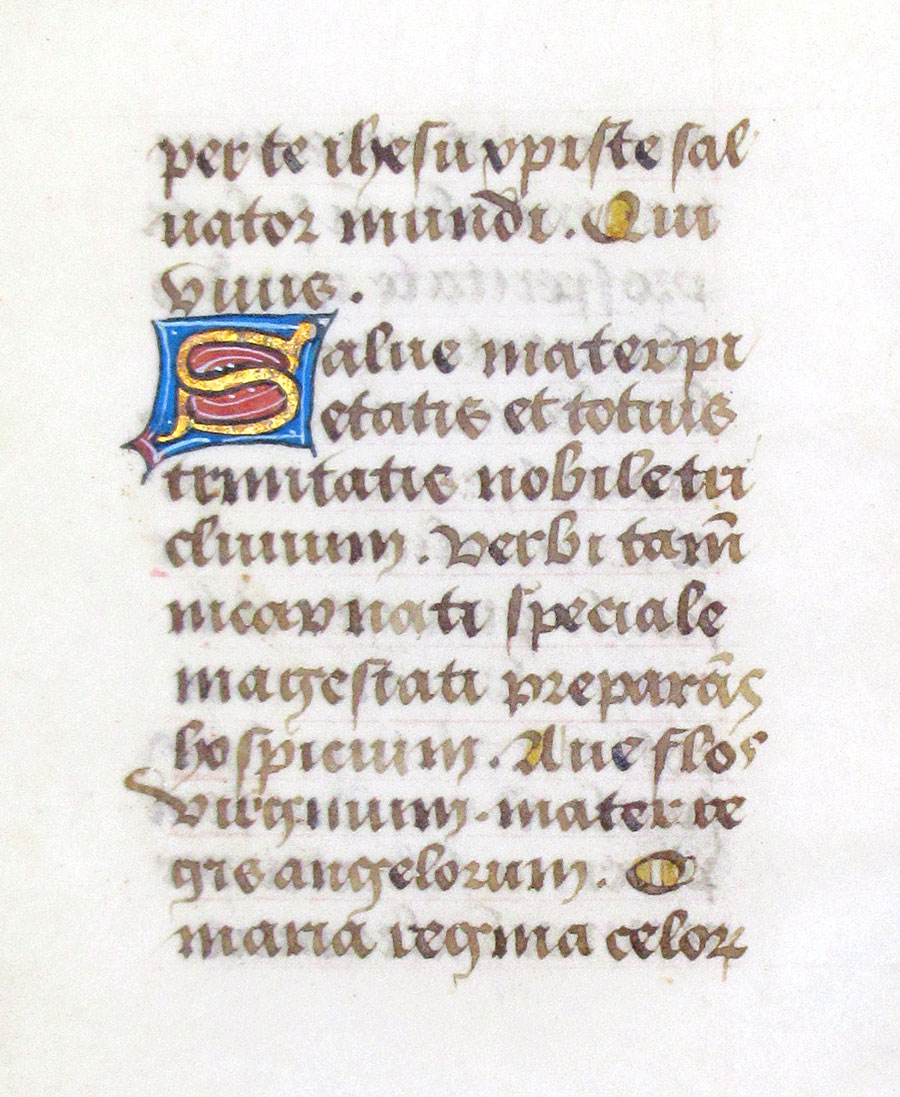 per te ihesu xpiste sal
uator mundi. Qui
viuis.
Salue mater pi
etatis et totius
trinitatis nobile tri
clinium. Verbi tam̄
incarnati speciale
magestati preparās
hospicium. Aue flos
virginum. mater re
gis angelorum. O
maria regina celoꝝ